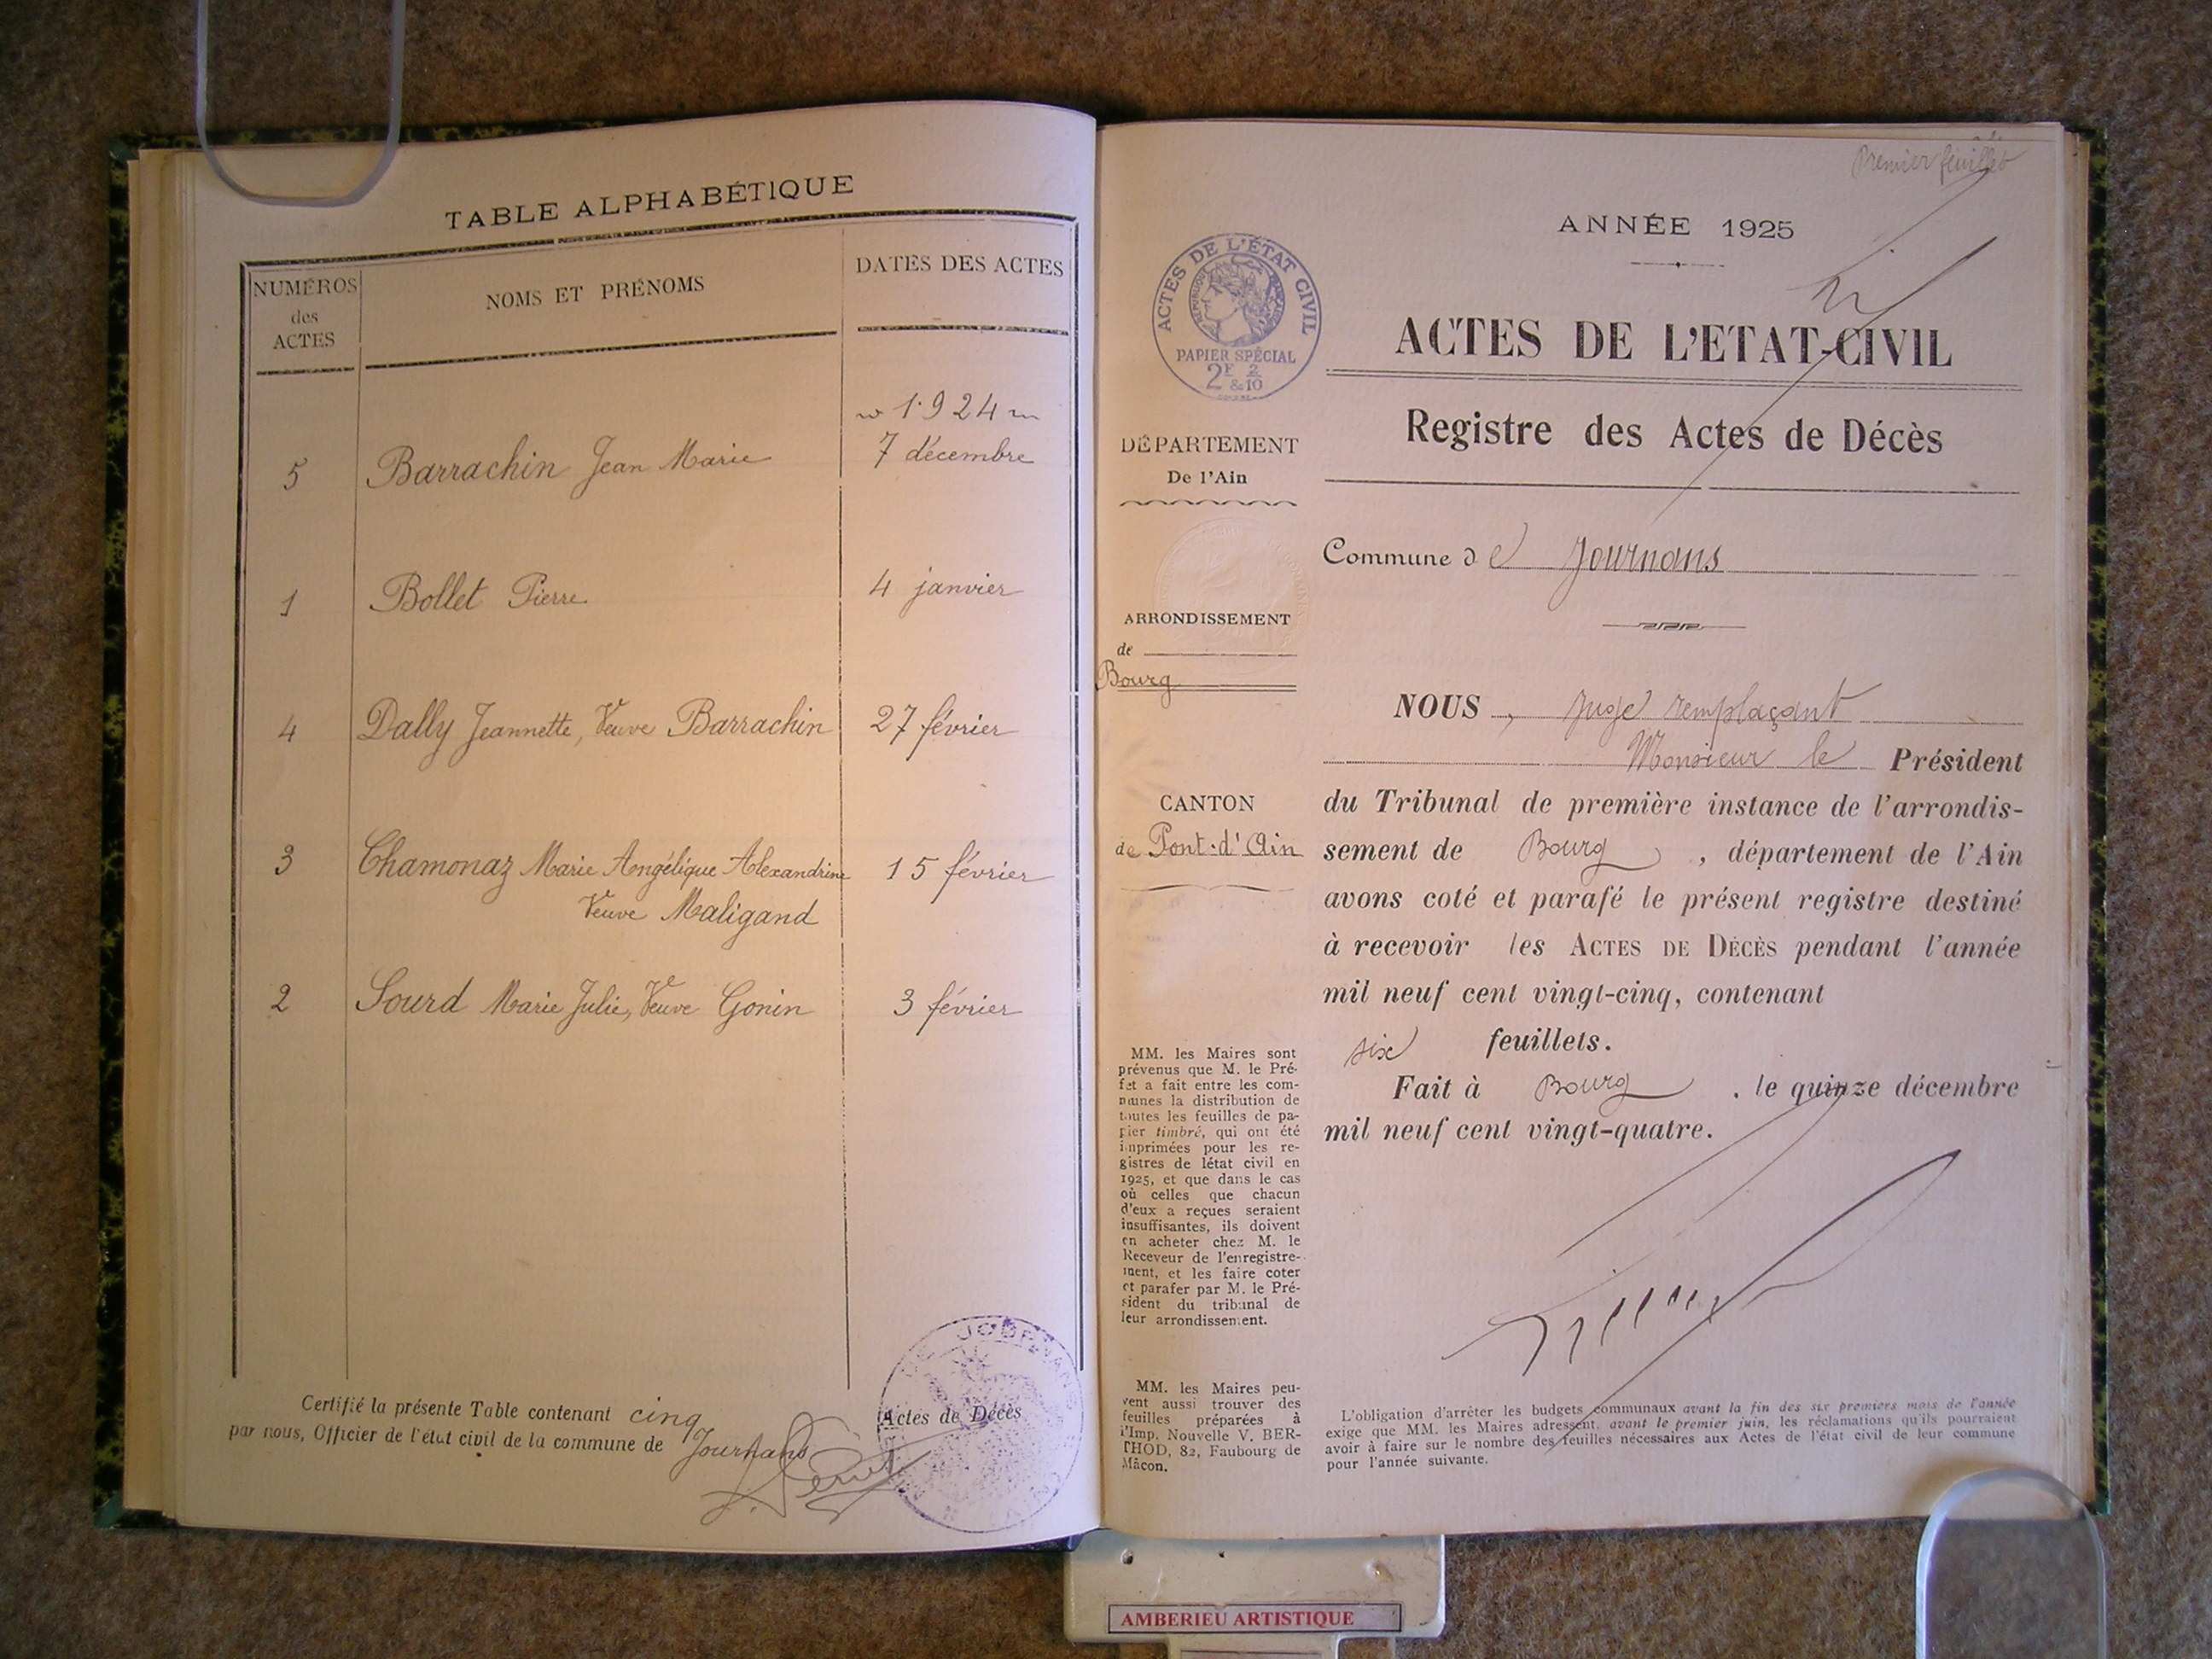 TABLE ALPHABÉTIQUE
NUMÉROS
des
ACTES
NOMS ET PRÉNOMS
DATES DES ACTES
1924
5 Barrachin Jean Marie 7 décembre
1 Bollet Pierre 4 janvier
4 Dally Jeannette, Veuve Barrachin 27 février
3 Chamonaz Marie Angélique Alexandrine 15 février
Veuve Maligand
2 Sourd Marie Julie, Veuve Gonin 3 février
Certifié la présente Table contenant cinq Actes de Décès
par nous, Officier de l'état civil de la commune de Journans
Premier feuillet
ANNÉE 1925
ACTES DE L'ÉTAT CIVIL
RÉPUBLIQUE FRANÇAISE
PAPIER SPÉCIAL
2F 2
&10
ACTES DE L'ETAT-CIVIL
Registre des Actes de Décès
DÉPARTEMENT
De l'Ain
Commune de Journans
ARRONDISSEMENT
de
Bourg
CANTON
de Pont-d'Ain
NOUS, Juge remplaçant
Monsieur le Président
du Tribunal de première instance de l'arrondis-
sement de Bourg, département de l'Ain
avons coté et parafé le présent registre destiné
à recevoir les ACTES DE DÉCÈS pendant l'année
mil neuf cent vingt-cinq, contenant
six feuillets.
Fait à Bourg, le quinze décembre
mil neuf cent vingt-quatre.
MM. les Maires sont
prévenus que M. le Pré-
fet a fait entre les com-
munes la distribution de
toutes les feuilles de pa-
pier timbré, qui ont été
imprimées pour les re-
gistres de létat civil en
1925, et que dans le cas
où celles que chacun
d'eux a reçues seraient
insuffisantes, ils doivent
en acheter chez M. le
Receveur de l'enregistre-
ment, et les faire coter
et parafer par M. le Pré-
sident du tribunal de
leur arrondissement.
MM. les Maires peu-
vent aussi trouver des
feuilles préparées à
l'Imp. Nouvelle V. BER-
THOD, 82, Faubourg de
Mâcon.
L'obligation d'arrêter les budgets communaux avant la fin des six premiers mois de l'année
exige que MM. les Maires adressent, avant le premier juin, les réclamations qu'ils pourraient
avoir à faire sur le nombre des feuilles nécessaires aux Actes de l'état civil de leur commune
pour l'année suivante.
AMBERIEU ARTISTIQUE